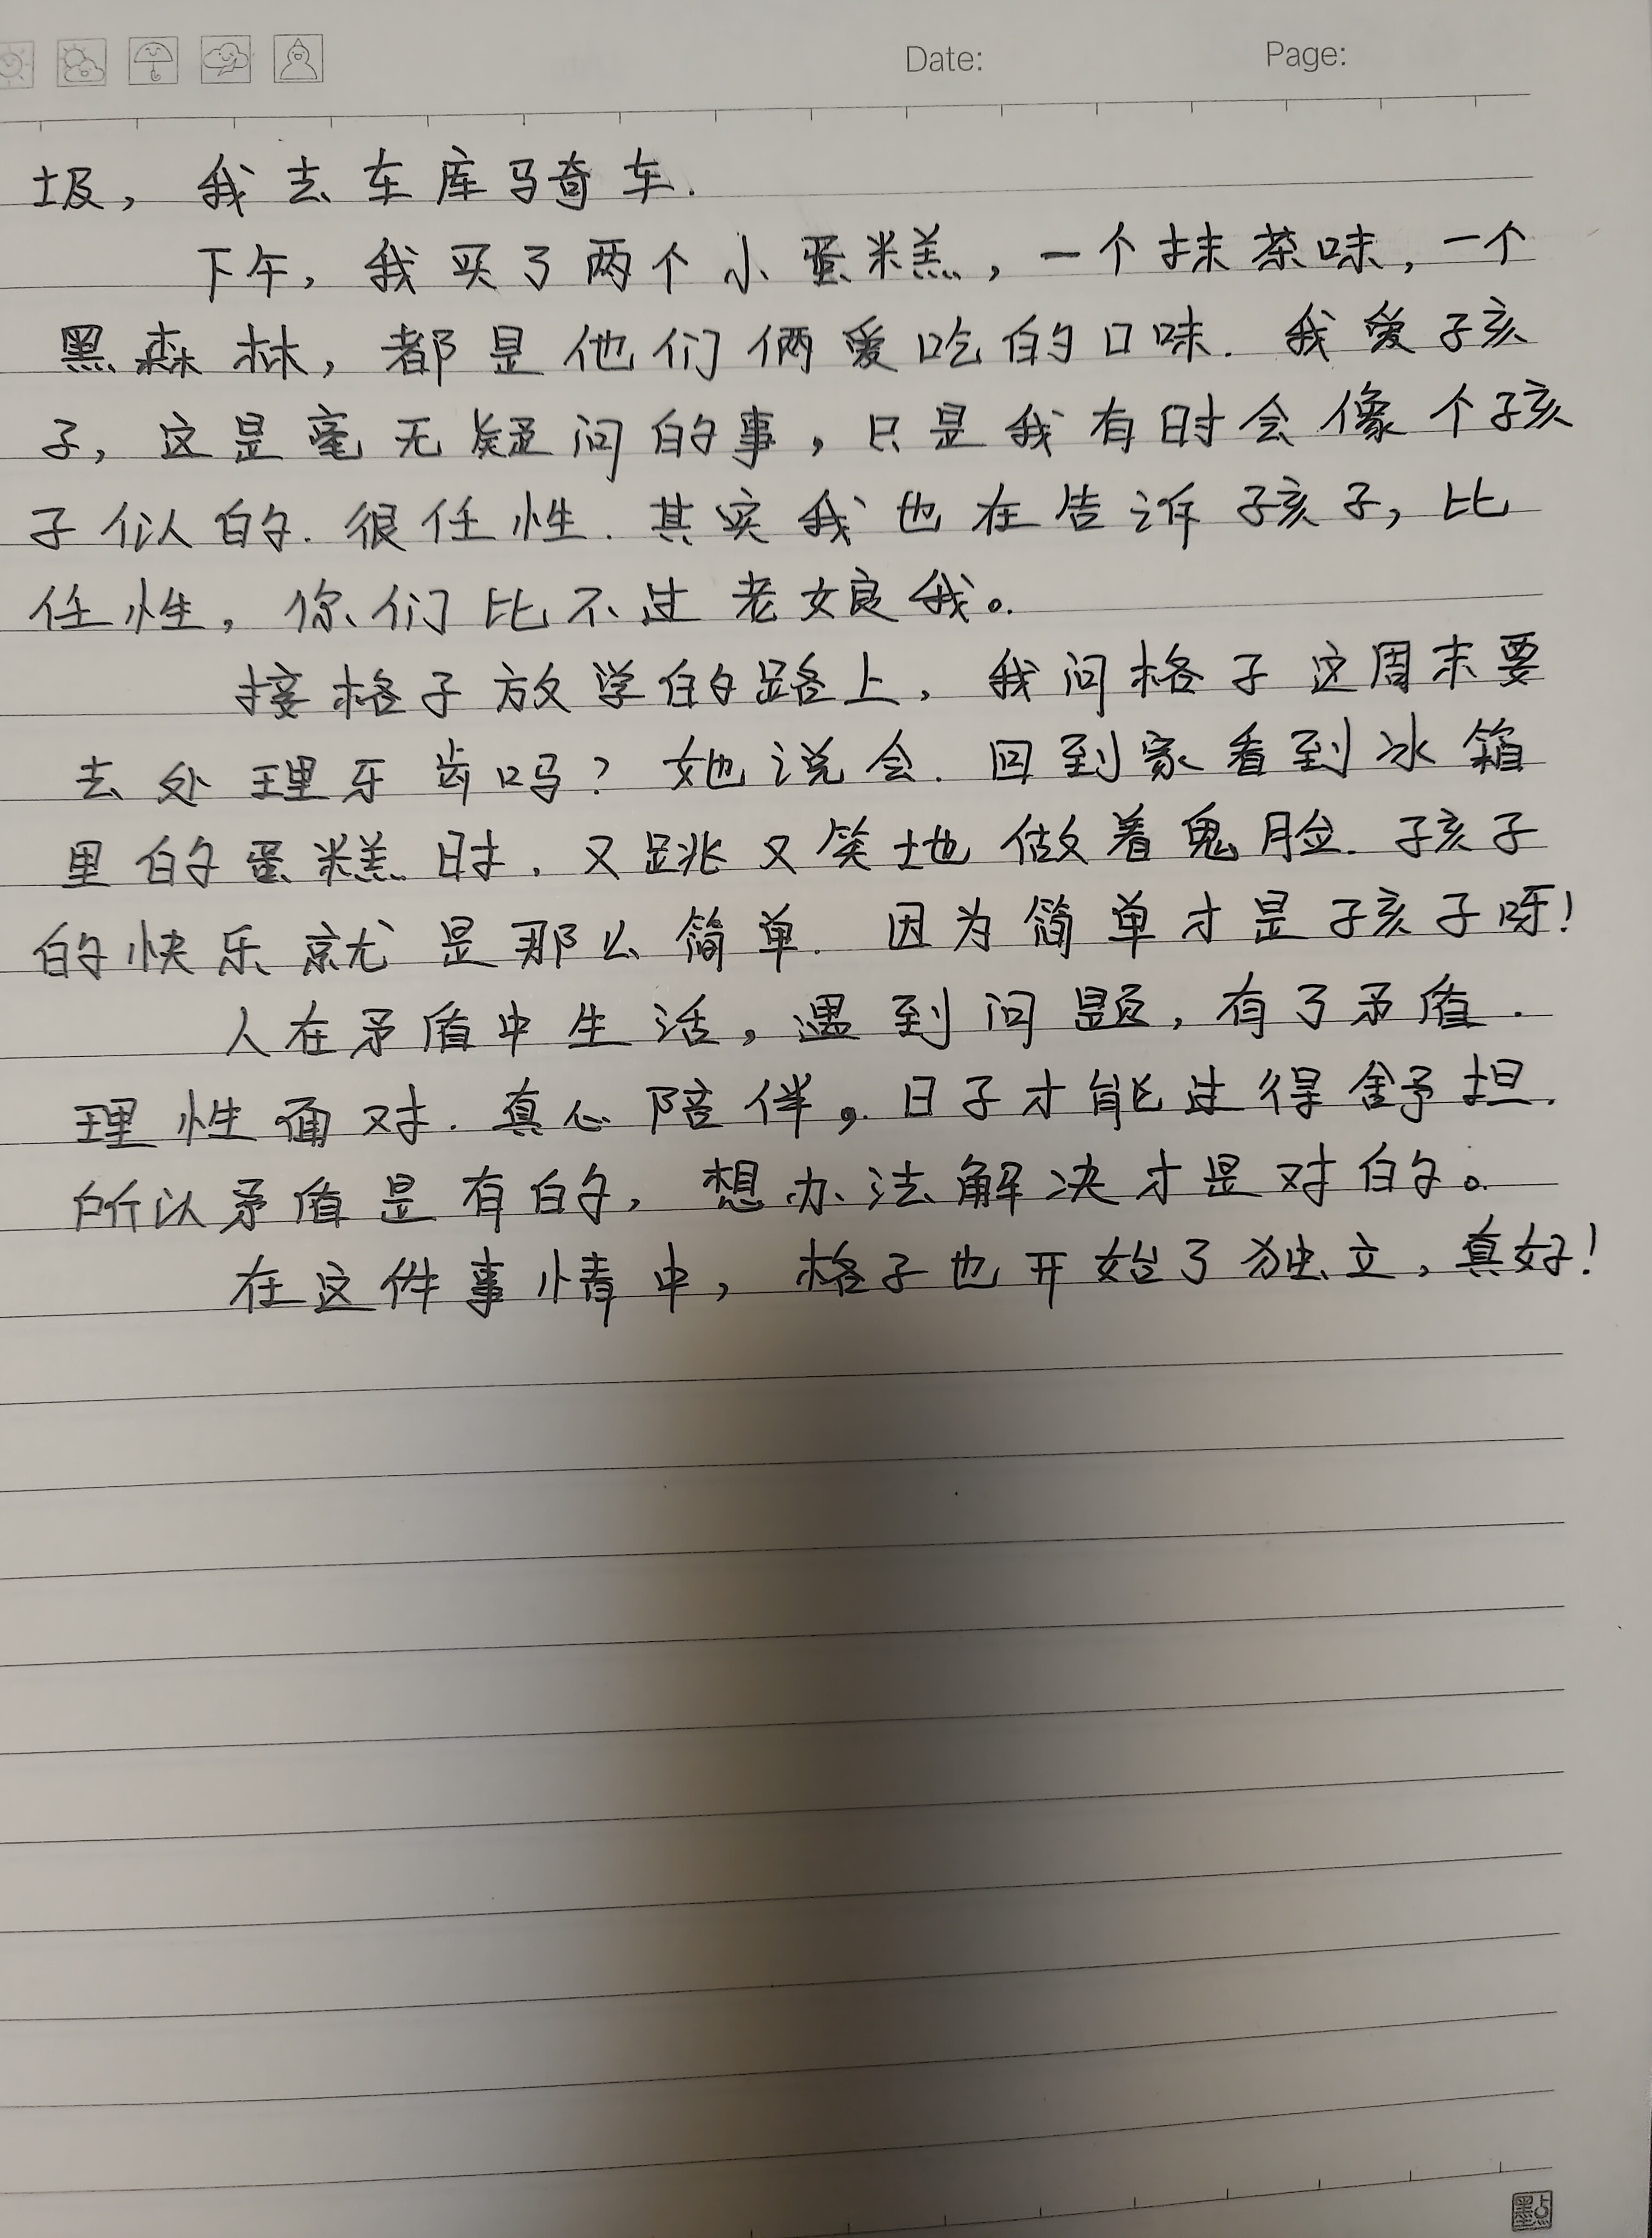 Date: Page:
圾，我去车库骑车.
下午，我买了两个小蛋糕，一个抹茶味，一个
黑森林，都是他们俩爱吃的口味.我爱孩
子，这是毫无疑问的事，只是我有时会像个孩
子似的.很任性.其实我也在告诉孩子，比
任性，你们比不过老娘我。
接格子放学的路上，我问格子这周末要
去处理牙齿吗？她说会.回到家看到冰箱
里的蛋糕时.又跳又笑地做着鬼脸.孩子
的快乐就是那么简单.因为简单才是孩子呀！
人在矛盾中生活，遇到问题，有了矛盾.
理性面对.真心陪伴。日子才能过得舒坦.
所以矛盾是有的，想办法解决才是对的。
在这件事情中，格子也开始了独立，真好！
墨点